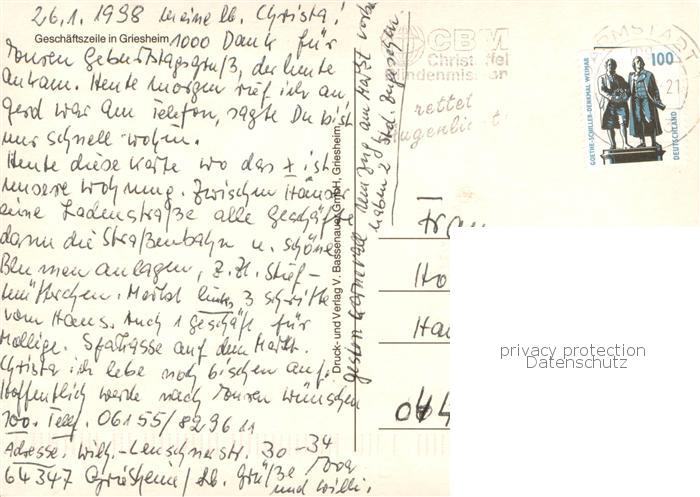 26.1.1998 Meine lb. Christa!
Geschäftszeile in Griesheim
1000 Dank für
Euren Geburtstagsgruß, der heute
ankam. Heute morgen rief ich an
Gerd war am Telefon, sagte Du bist
nur schnell
Heute diese Karte wo das x ist
unsere Wohnung. Zwischen Häuser
eine Ladenstraße alle Geschäfte
dann die Straßenbahn u. schöne
Blumenanlagen, z.Zt. Stief-
mütterchen. Markt links 3 Schritte
vom Haus. Auch 1 Geschäft für
Mollige. Sparkasse auf dem Markt.
Christa ich lebe noch bischen auf.
Hoffentlich werde nach Euren Wünschen
100. Telf. 06155/829611
Adresse. Wilh.-Leuschnerstr. 30-34
64347 Griesheim / Lb. Grüße
und Willi.
Druck- und Verlag V. Bassenauer GmbH, Griesheim
gestern Karneval Umzug am Markt vorbei
haben 2 Std.
CBM
Christoffel
Blindenmission
rettet
Augenlicht
DARMSTADT
21
100
GOETHE-SCHILLER-DENKMAL WEIMAR
DEUTSCHLAND
Frau
Ho
Ha
044
privacy protection
Datenschutz